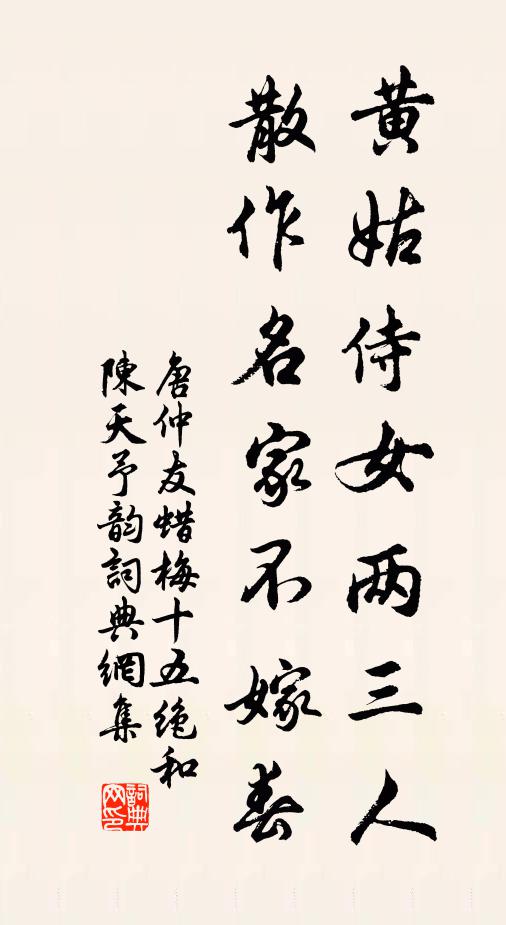 黄姑侍女两三人
散作名家不嫁春
唐仲友蜡梅十五绝和
陳天予韵詞典網集
詞典网印